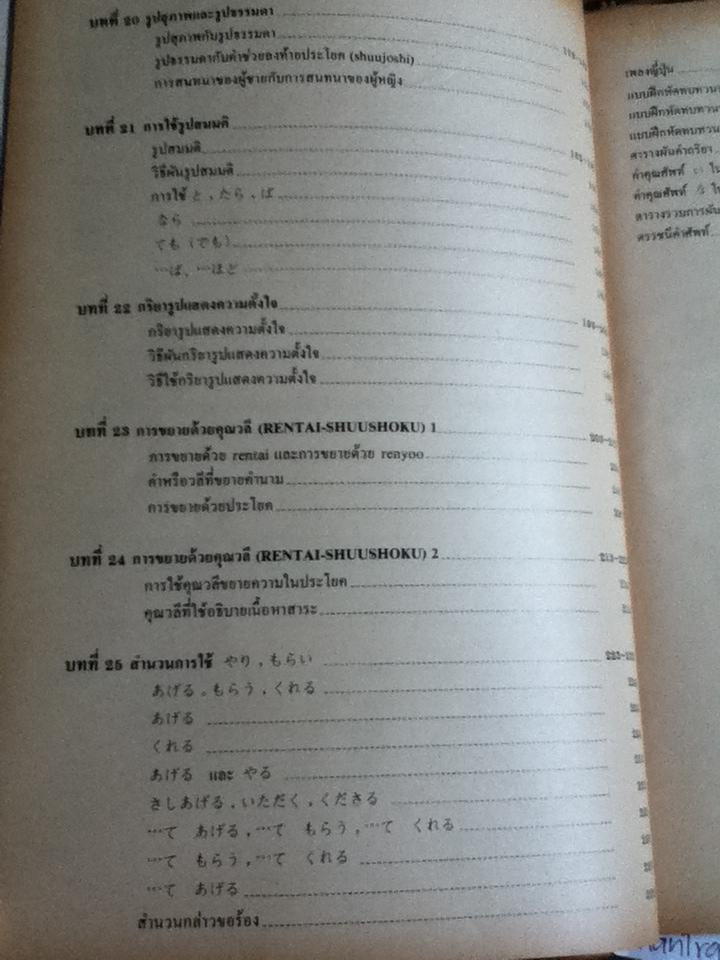 บทที่ 20 รูปสุภาพและรูปธรรมดา
รูปสุภาพกับรูปธรรมดา
รูปธรรมดากับคำช่วยลงท้ายประโยค (shuujoshi)
การสนทนาของผู้ชายกับการสนทนาของผู้หญิง
บทที่ 21 การใช้รูปสมมติ
รูปสมมติ
วิธีผันรูปสมมติ
การใช้ と, たら, ば
なら
ても (でも)
…ば, …ほど
บทที่ 22 กริยารูปแสดงความตั้งใจ
กริยารูปแสดงความตั้งใจ
วิธีผันกริยารูปแสดงความตั้งใจ
วิธีใช้กริยารูปแสดงความตั้งใจ
บทที่ 23 การขยายด้วยคุณวลี (RENTAI-SHUUSHOKU) 1
การขยายด้วย rentai และการขยายด้วย renyoo
คำหรือวลีที่ขยายคำนาม
การขยายด้วยประโยค
บทที่ 24 การขยายด้วยคุณวลี (RENTAI-SHUUSHOKU) 2
การใช้คุณวลีขยายความในประโยค
คุณวลีที่ใช้อธิบายเนื้อหาสาระ
บทที่ 25 สำนวนการใช้ やり, もらい
あげる。もらう, くれる
あげる
くれる
あげる และ やる
さしあげる, いただく, くださる
…て あげる, …て もらう, …て くれる
…て もらう, …て くれる
…て あげる
สำนวนกล่าวขอร้อง
เพลงญี่ปุ่น
แบบฝึกหัดทบทวน
แบบฝึกหัดทบทวน
แบบฝึกหัดทบทวน
ตารางผันคำกริยา
คำคุณศัพท์ い ใน
คำคุณศัพท์ な ใน
ตารางรวมการผัน
ดรรชนีคำศัพท์